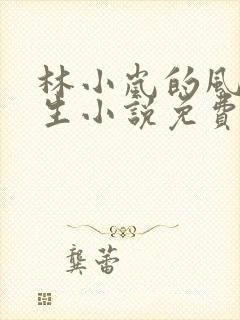 林小嵐的風
生小説免費
龔蕾